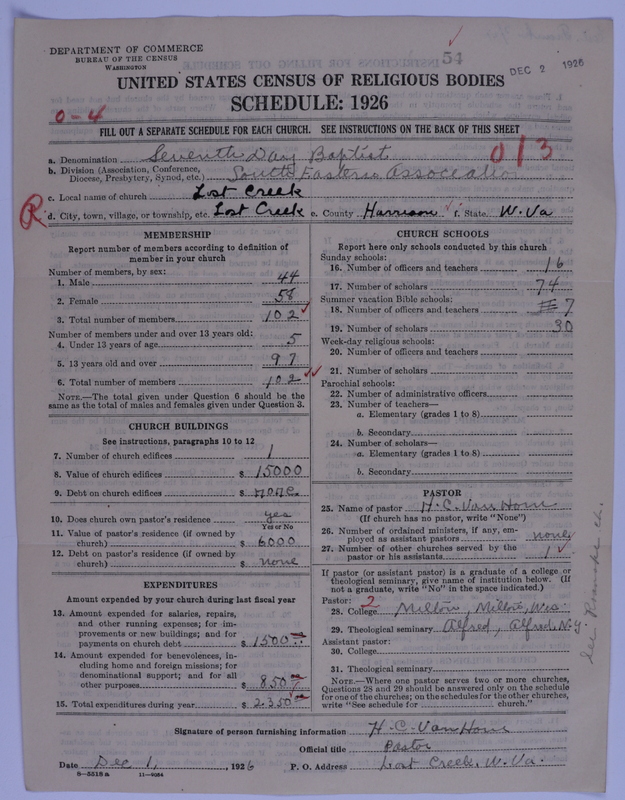 DEPARTMENT OF COMMERCE
BUREAU OF THE CENSUS
WASHINGTON
54
DEC 2 1926
UNITED STATES CENSUS OF RELIGIOUS BODIES
SCHEDULE: 1926
0-4
FILL OUT A SEPARATE SCHEDULE FOR EACH CHURCH. SEE INSTRUCTIONS ON THE BACK OF THIS SHEET
a. Denomination Seventh Day Baptist
0/3
b. Division (Association, Conference, Diocese, Presbytery, Synod, etc.) South Eastern Association
c. Local name of church Lost Creek
R
d. City, town, village, or township, etc. Lost Creek e. County Harrison f. State W. Va
MEMBERSHIP
Report number of members according to definition of
member in your church
Number of members, by sex:
1. Male 44
2. Female 58
3. Total number of members 102
Number of members under and over 13 years old:
4. Under 13 years of age 5
5. 13 years old and over 97
6. Total number of members 102
NOTE.—The total given under Question 6 should be the
same as the total of males and females given under Question 3.
CHURCH BUILDINGS
See instructions, paragraphs 10 to 12
7. Number of church edifices 1
8. Value of church edifices $ 15000
9. Debt on church edifices $ none
10. Does church own pastor's residence yes
Yes or No
11. Value of pastor's residence (if owned by
church) $ 6000
12. Debt on pastor's residence (if owned by
church) $ none
EXPENDITURES
Amount expended by your church during last fiscal year
13. Amount expended for salaries, repairs,
and other running expenses; for im-
provements or new buildings; and for
payments on church debt $ 1500 00
14. Amount expended for benevolences, in-
cluding home and foreign missions; for
denominational support; and for all
other purposes $ 850 00
15. Total expenditures during year $ 2350 00
CHURCH SCHOOLS
Report here only schools conducted by this church
Sunday schools:
16. Number of officers and teachers 16
17. Number of scholars 74
Summer vacation Bible schools:
18. Number of officers and teachers 7
19. Number of scholars 30
Week-day religious schools:
20. Number of officers and teachers
21. Number of scholars
Parochial schools:
22. Number of administrative officers
23. Number of teachers—
a. Elementary (grades 1 to 8)
b. Secondary
24. Number of scholars—
a. Elementary (grades 1 to 8)
b. Secondary
PASTOR
25. Name of pastor H. C. Van Horn
(If church has no pastor, write "None")
26. Number of ordained ministers, if any, em-
ployed as assistant pastors none
27. Number of other churches served by the
pastor or his assistants 1
If pastor (or assistant pastor) is a graduate of a college or
theological seminary, give name of institution below. (If
not a graduate, write "No" in the space indicated.)
Pastor: 2
28. College Milton, Milton, Wis.
29. Theological seminary Alfred, Alfred, N.Y.
Assistant pastor:
30. College
31. Theological seminary
NOTE.—Where one pastor serves two or more churches,
Questions 28 and 29 should be answered only on the schedule
for one of the churches; on the schedules for the other churches,
write "See schedule for ________ church."
See Roanoke ch.
Signature of person furnishing information H. C. Van Horn
Official title Pastor
Date Dec 1, 1926 P. O. Address Lost Creek, W. Va.
8-5518a 11-9084